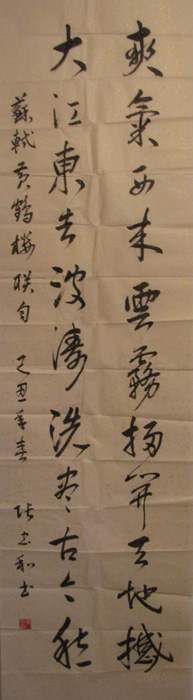 爽氣西来雲霧掃開天地撼
大江東去波濤洗盡古今愁
蘇軾黄鶴楼联句 己丑年春 张志和书